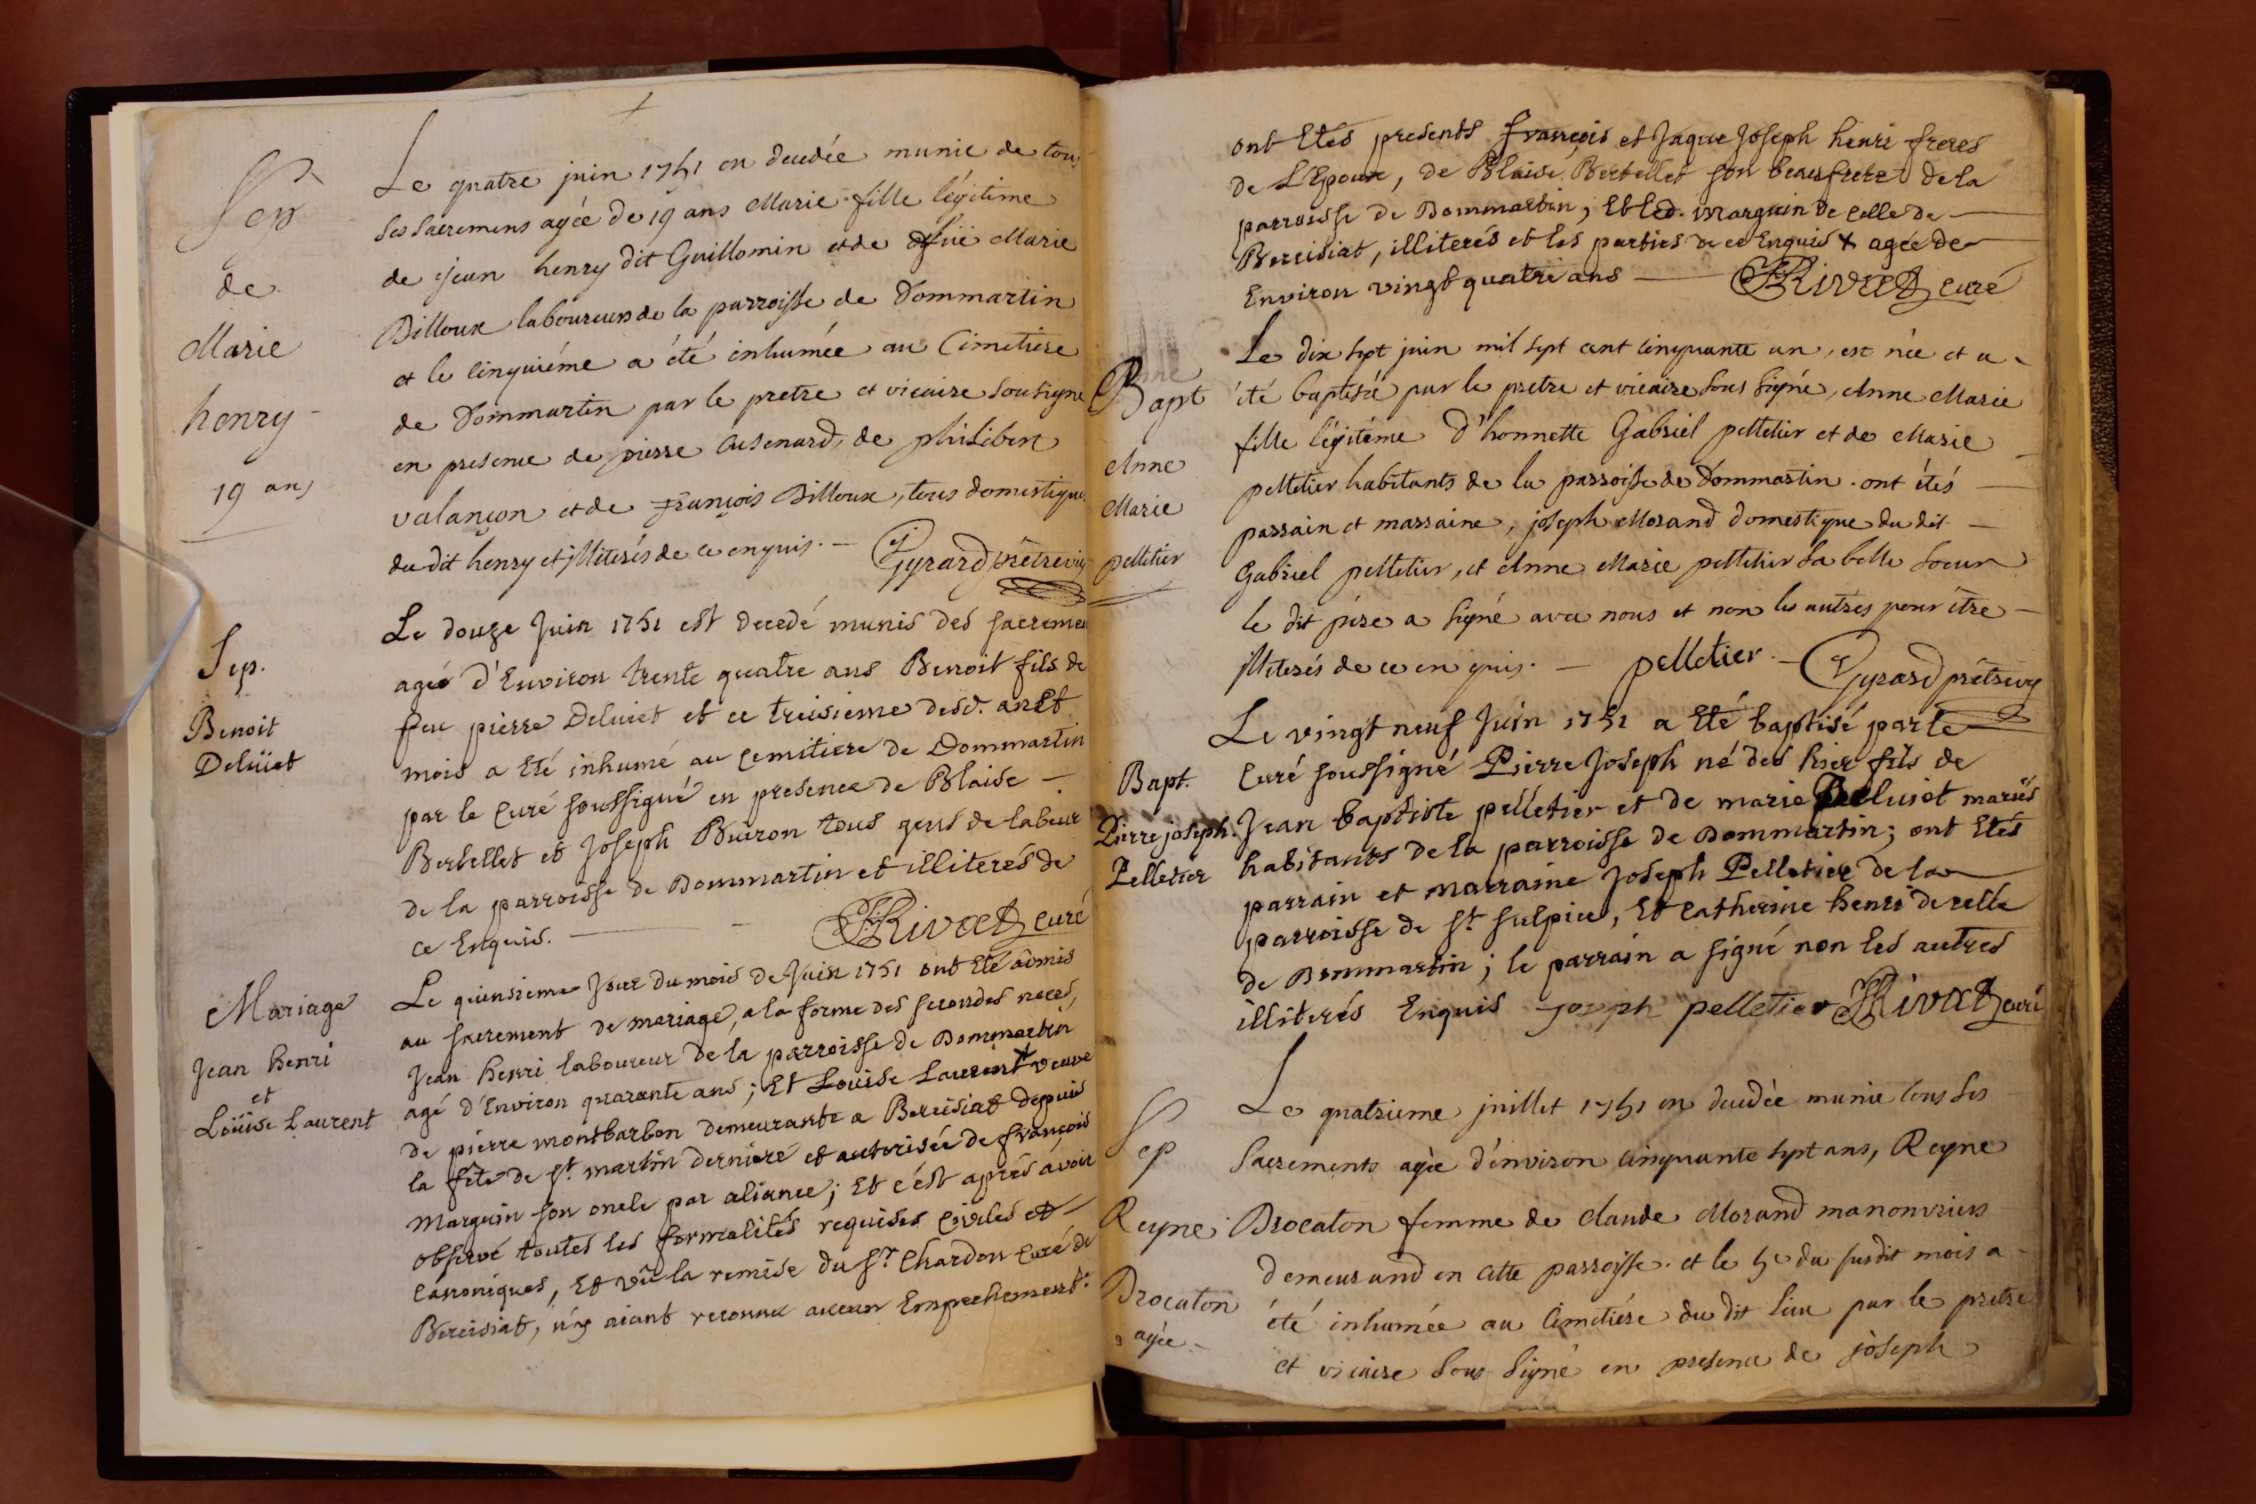 Sep
de
Marie
henry
19 ans
Le quatre juin 1751 en decedée munie de tous
ses sacremens agée de 19 ans Marie fille légitime
de jean henry dit Guillomin et de Marie
Billoux laboureurs de la parroisse de Dommartin
et le cinquiéme a été inhumée au Cimetiere
de Dommartin par le pretre et vicaire sousigné
en presence de pierre de philibert
valançon et de françois Billoux, tous domestiques
du dit henry et illiterés de ce enquis. — Gyrard prêtre vic
Sep.
Benoit
Deluiet
Le douze Juin 1751 est decedé munis des sacremen
agé d'Environ trente quatre ans Benoit fils de
feu pierre Deluiet et ce treisieme desd. an et
mois a Eté inhumé au cemitiere de Dommartin
par le Curé soussigné en presence de Blaise —
Bertellet et Joseph Buiron tous gens de labeur
de la parroisse de Dommartin et illiterés de
ce Enquis. — Rivat curé
Mariage
Jean henri
et
Loüise Laurent
Le quinsieme Jour du mois de Juin 1751 ont Eté admis
au sacrement de mariage, a la forme des secondes noces,
Jean henri laboureur de la parroisse de Dommartin
agé d'Environ quarante ans; Et Louise Laurent + veuve
de pierre montbarbon demeurante a Bereisiat depuis
la fête de st. martin derniere et autorisée de françois
Marguin son oncle par aliance; Et c'ést aprés avoir
observé toutes les formalités requises civiles et —
canoniques, Et vû la remise du sr. Chardon curé de
Bereisiat, n'y aiant reconnu aucun Empechement.
ont Etés presents françois et Jaque Joseph henri freres
de L'Epoux, de Blaise Bertellet son beaufrere de la
parroisse de Dommartin; Et led. marguin de celle de —
Bereisiat, illiterés et les parties de ce Enquis + agée de —
Environ vingt quatre ans — Rivat curé
Bapt
Anne
Marie
pelletier
Le dix sept juin mil sept cent cinquante un, est née et a
été baptisée par le pretre et vicaire sous signé, Anne Marie
fille légitème d'honnette Gabriel pelletier et de Marie
pelletier habitants de la parroisse de Dommartin. ont étés —
parrain et marraine, joseph Morand domestique du dit —
Gabriel pelletier, et Anne Marie pelletier sa belle soeur
le dit pére a signé avec nous et non les autres pour être —
illiterés de ce en quis. — pelletier. — Gyrard prêtre vic
Bapt.
Pierre joseph
Pelletier
Le vingt neuf Juin 1751 a Eté baptisé par le
Curé soussigné Pierre Joseph né des hier fils de
Jean baptiste pelletier et de marie Deluiet mariés
habitants de la parroisse de Dommartin; ont Etés
parrain et marraine Joseph Pelletier de la —
parroisse de st. sulpice, Et catherine henri de celle
de Dommartin; le parrain a signé non les autres
illiterés Enquis joseph pelletier Rivat curé
Sep
Reyne
Brocaton
agée
Le quatrieme juillet 1751 en decedée munie tous ses
sacrements agée d'énviron cinquante sept ans, Reyne
Brocaton femme de claude Morand manouvriers
demeurand en cette parroisse. et le 5e du susdit mois a
été inhumée au cimetiére du dit lieu par le pretre
et vicaire sous signé en presence de joseph